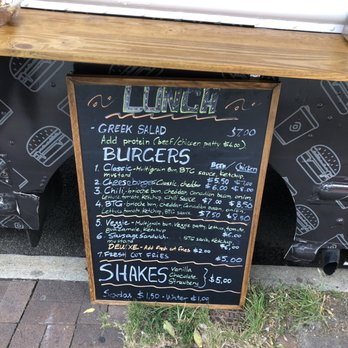 LUNCH
- GREEK SALAD $7.00
Add protein (beef/chicken patty $6.00)
BURGERS
Beef / Chicken
1. Classic - Multigrain bun, BTG sauce, ketchup,
mustard $5.50
2. Cheeseburger Classic, cheddar $6.00
3. Chili, brioche bun, cheddar,
Lettuce tomato, ketchup, chili sauce
4. BTG - brioche bun, cheddar,
Lettuce tomato, ketchup, BTG sauce $7.50 $8.50
5. Veggie - Multigrain bun, Veggie patty, lettuce,
Tomato, ketchup
6. Sausage Sandwich - BTG sauce, ketchup,
mustard $5.00
DELUXE - Add Fries $2.00
7. FRESH CUT FRIES $5.00
SHAKES Vanilla
Chocolate } $5.00
Strawberry
Sodas $1.50 - Water $1.00